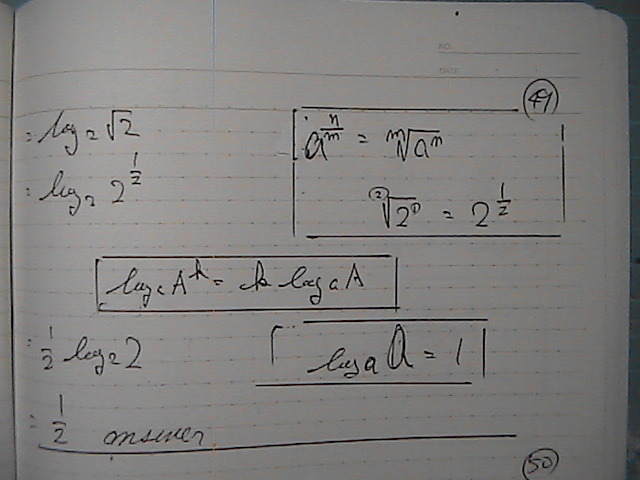 NO.
DATE
(49)
= log₂ √2
a^(n/m) = ᵐ√aⁿ
= log₂ 2^(1/2)
²√2¹ = 2^(1/2)
logₐ Aᵏ = k logₐ A
= 1/2 log₂ 2
logₐ a = 1
= 1/2 answer
(50)